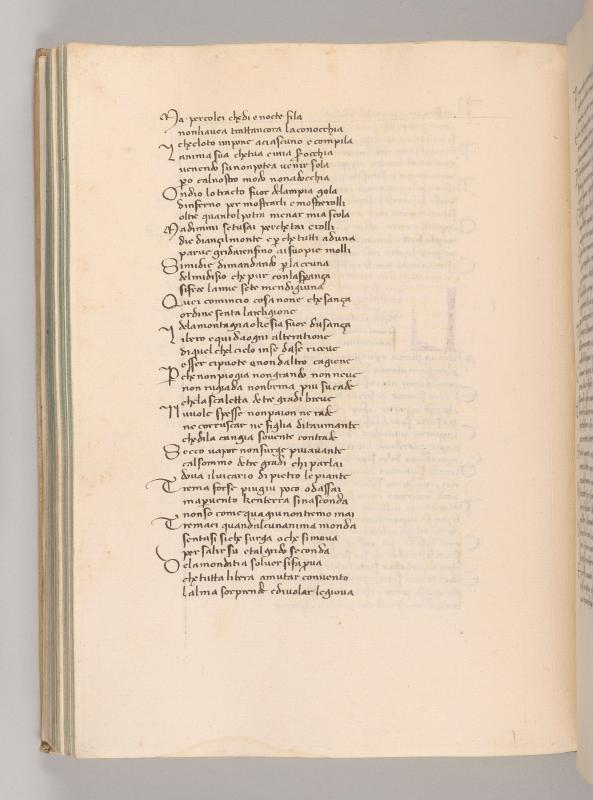 Ma percolei chedi enocte fila
nonliavea trattancora laconocchia
checloto impone aciascuno e compila
Lanima sua chetua emia srocchia
venendo sunonpotea venir sola
però calnostro modo nonadocchia
Ondio fo tracto fuor delampia gola
dinferno per mostrarli emosterolli
oltre quantol potra menar mia scola
Madimmi setusai perche tai crolli
die dianzilmonte e perche tutti aduna
parue gridarensino asuopie molli
Simidie dimandando per lacruna
delmidisio chepur conlasperança
sifece lamie sete mendigiuna
Quei comincio cosa none chesança
ordine senta lareligione
delamontagna okesia fuor dusança
Libero equidaogni alteratione
diquel chel cielo inse dase riceue
esser cipuote enondaltro cagione
Perche nonpiogia nongrando nonneue
non rugiada nonbrina piu sucade
chela scaletta detre gradi breue
Nuuole spesse nonpaion ne rade
ne corruscar ne figlia ditaumante
chedila cangia souente contrade
Secco uapor nonsurge piuauante
calsommo detre gradi chi parlai
dova iluicario di pietro lepiante
Trema forse piugiu poco odassai
maperuento kenterra sinasconda
nonso come quaqiu nontremo mai
Tremaci quandalcunanima monda
sentasi siche surga oche simoua
persalir su etalgrido seconda
Delamonditia soluer sifa prua
chetutta libera amutar conuento
lalma sorprende ediuolar legioua